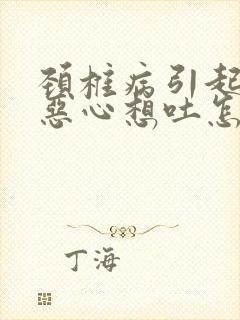 颈柱病引起
恶心想吐怎
丁海